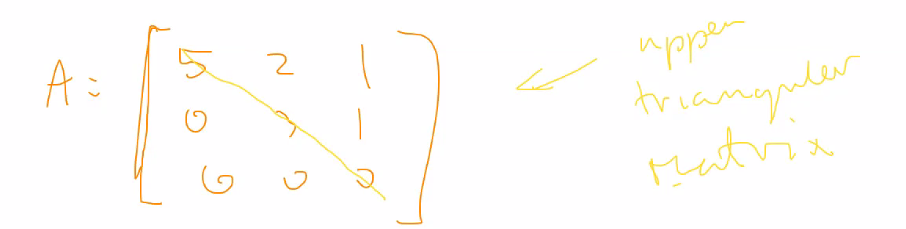 A = [ 5 2 1
0 1
0 0 0 ]
upper
triangular
matrix